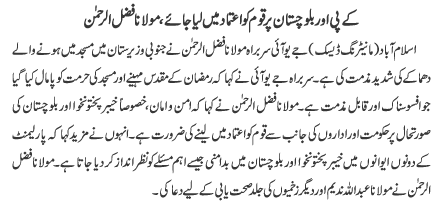 کے پی اور بلوچستان پر قوم کو اعتماد میں لیا جائے، مولانا فضل الرحمٰن
اسلام آباد (مانیٹرنگ ڈیسک) جے یو آئی سربراہ مولانا فضل الرحمٰن نے جنوبی وزیرستان میں مسجد میں ہونے والے
دھماکے کی شدید مذمت کی ہے۔ سربراہ جے یو آئی نے کہا کہ رمضان کے مقدس مہینے اور مسجد کی حرمت کو پامال کیا گیا
جو افسوسناک اور قابل مذمت ہے۔ مولانا فضل الرحمٰن نے کہا کہ امن و امان، خصوصاً خیبر پختونخوا اور بلوچستان کی
صورتحال پر حکومت اور اداروں کی جانب سے قوم کو اعتماد میں لینے کی ضرورت ہے۔ انہوں نے مزید کہا کہ پارلیمنٹ
کے دونوں ایوانوں میں خیبر پختونخوا اور بلوچستان میں بدامنی جیسے اہم مسئلے کو نظر انداز کر دیا جاتا ہے۔ مولانا فضل
الرحمٰن نے مولانا عبداللہ ندیم اور دیگر زخمیوں کی جلد صحت یابی کے لیے دعا کی۔